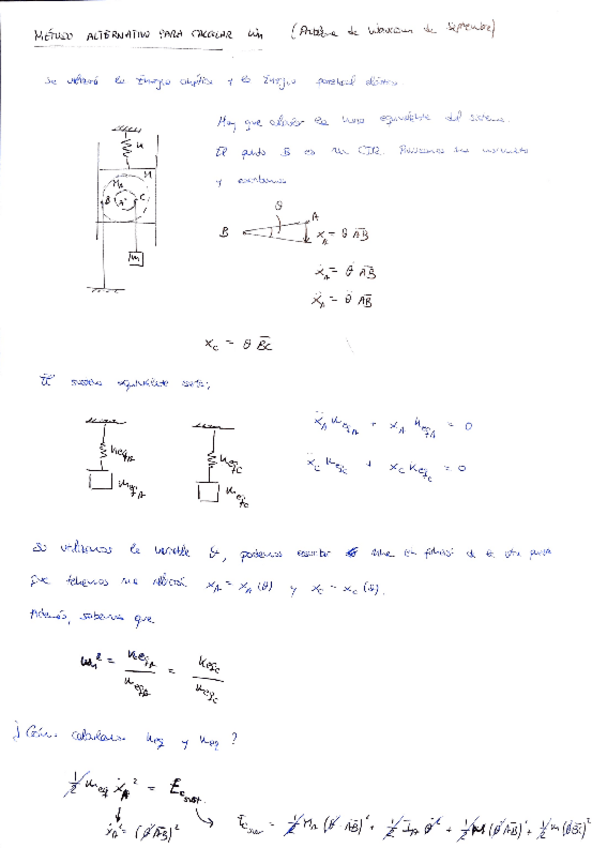 MÉTODO ALTERNATIVO PARA CALCULAR ωn (Problema de vibraciones de septiembre)
Se utilizará la Energía cinética y la Energía potencial elástica.
Hay que calcular la masa equivalente del sistema.
El punto B es un CIR. Tomamos
y escribimos
K
M
M_A
B A C
m
θ
A
B
x_A = θ A̅B̅
ẋ_A = θ̇ A̅B̅
ẍ_A = θ̈ A̅B̅
x_C = θ B̅C̅
El sistema equivalente sería:
K_eqA
m_eqA
K_eqC
m_eqC
ẍ_A m_eqA + x_A K_eqA = 0
ẍ_C m_eqC + x_C K_eqC = 0
Si utilizamos la variable θ, podemos escribir una en función de la otra puesto
que tenemos una relación x_A = x_A (θ) y x_C = x_C (θ).
Además, sabemos que
ωn² = K_eqA / m_eqA = K_eqC / m_eqC
¿Cómo calculamos K_eq y m_eq?
1/2 m_eq ẋ_A² = E_c sist.
ẋ_A² = (θ̇ A̅B̅)²
E_c sist = 1/2 M_A (θ̇ A̅B̅)² + 1/2 I_A θ̇² + 1/2 M (θ̇ A̅B̅)² + 1/2 m (θ̇ B̅C̅)²